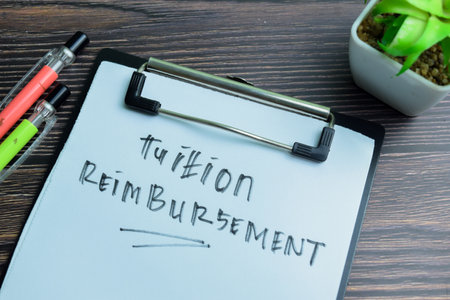 Tuition
REIMBURSEMENT